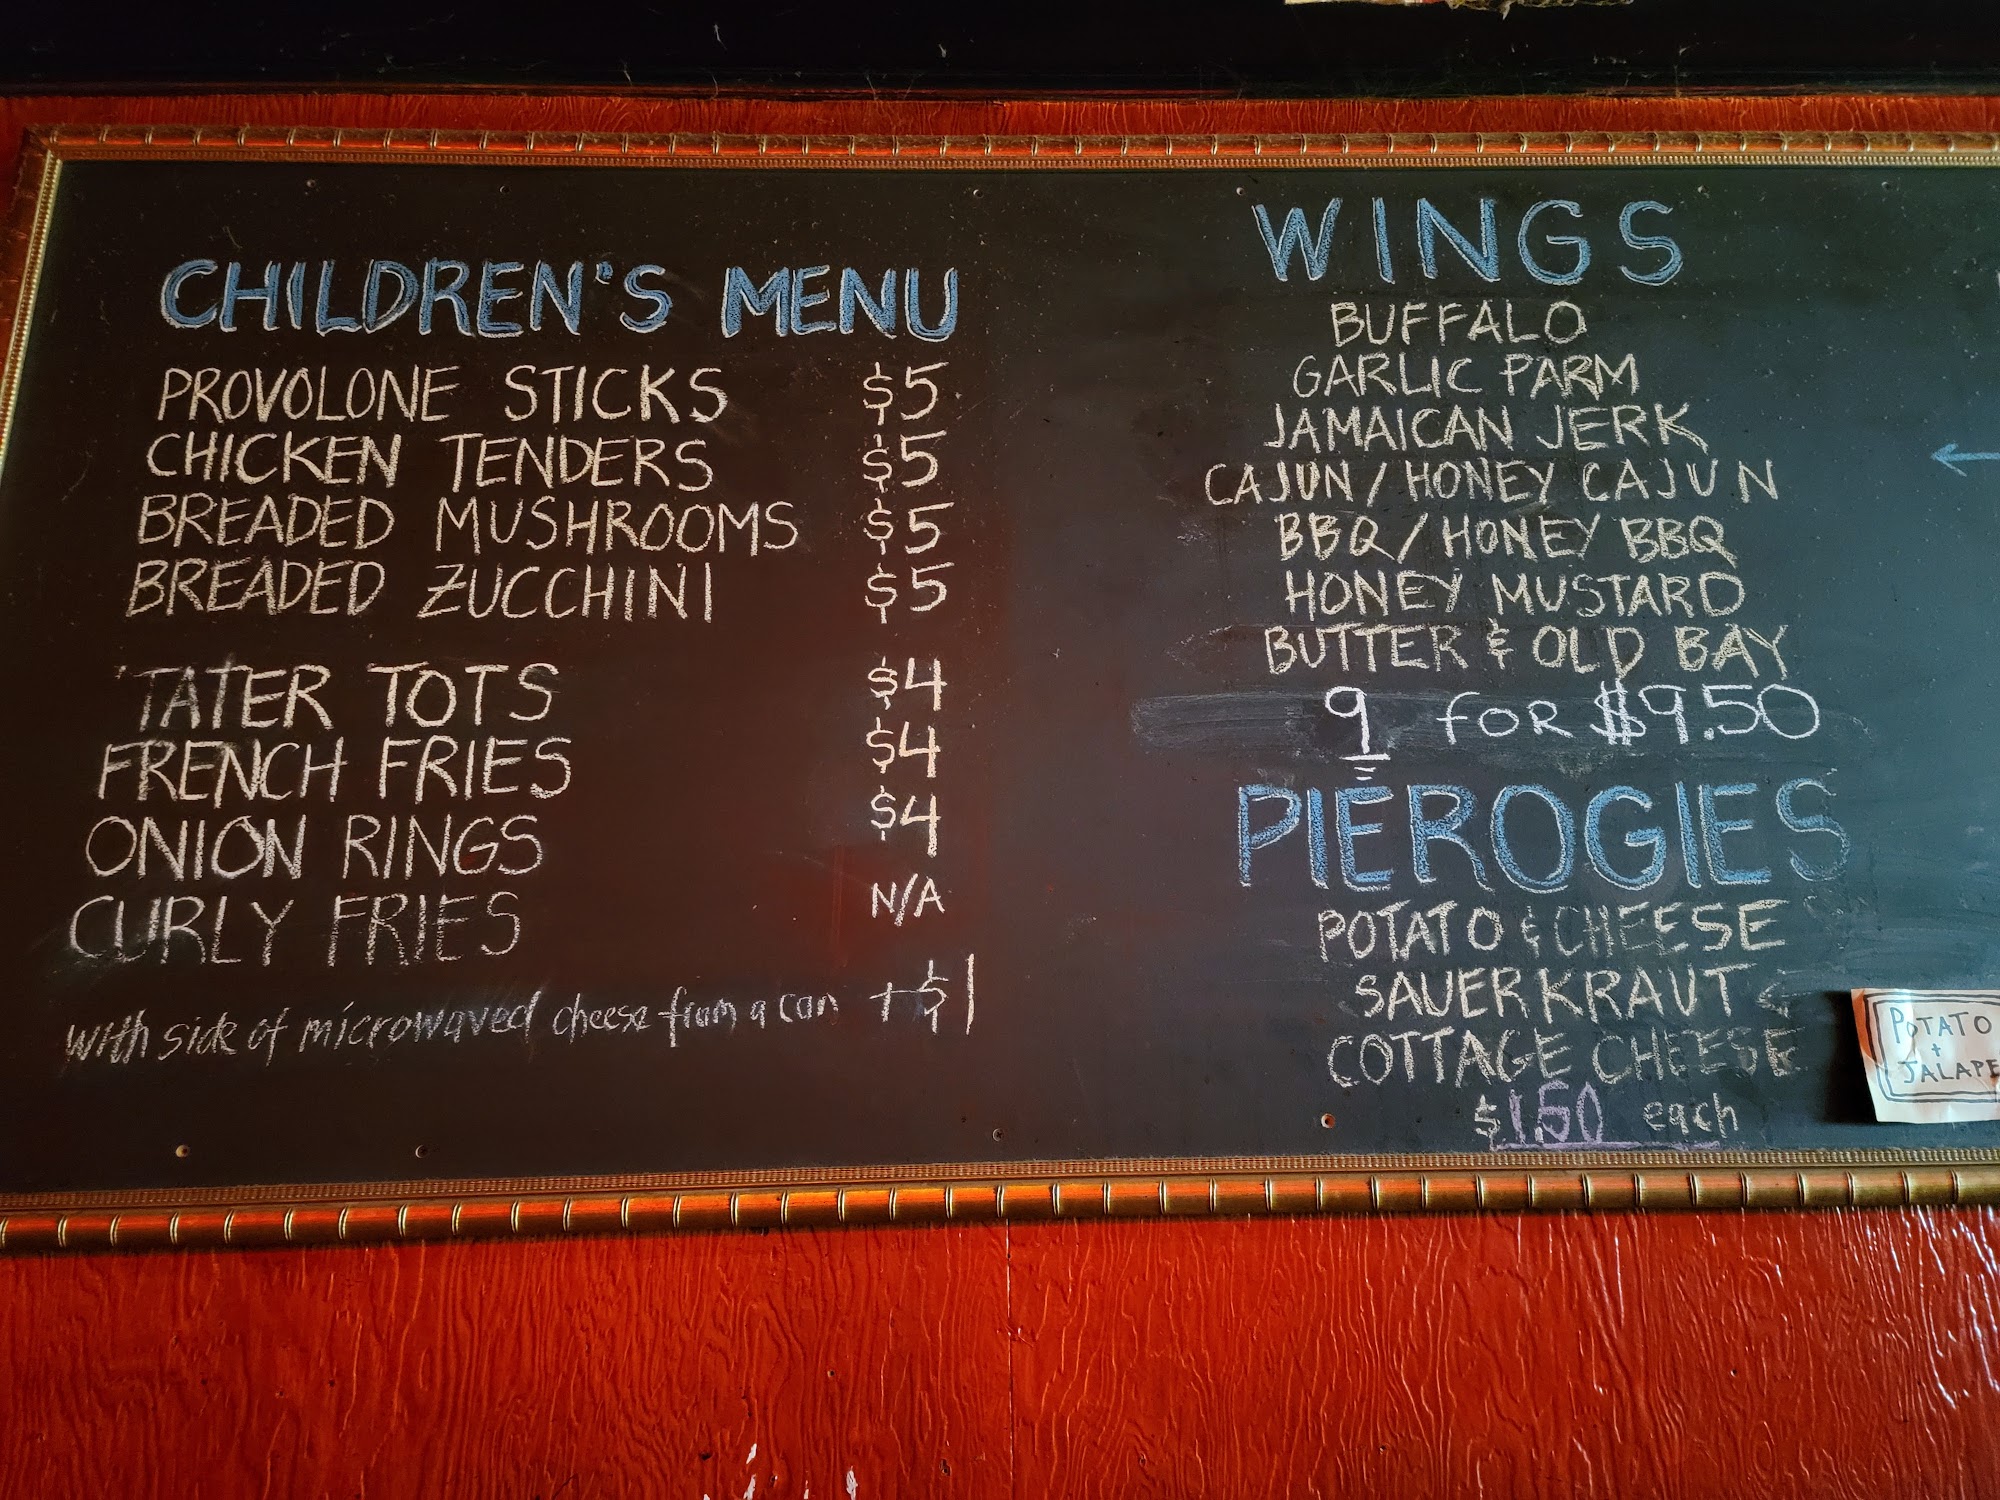 CHILDREN'S MENU
PROVOLONE STICKS $5
CHICKEN TENDERS $5
BREADED MUSHROOMS $5
BREADED ZUCCHINI $5
'TATER TOTS $4
FRENCH FRIES $4
ONION RINGS $4
CURLY FRIES N/A
with side of microwaved cheese from a can +$1
WINGS
BUFFALO
GARLIC PARM
JAMAICAN JERK
CAJUN / HONEY CAJUN
BBQ / HONEY BBQ
HONEY MUSTARD
BUTTER & OLD BAY
9 FOR $9.50
PIEROGIES
POTATO & CHEESE
SAUERKRAUT
COTTAGE CHEESE
$1.50 each
POTATO
+
JALAPE